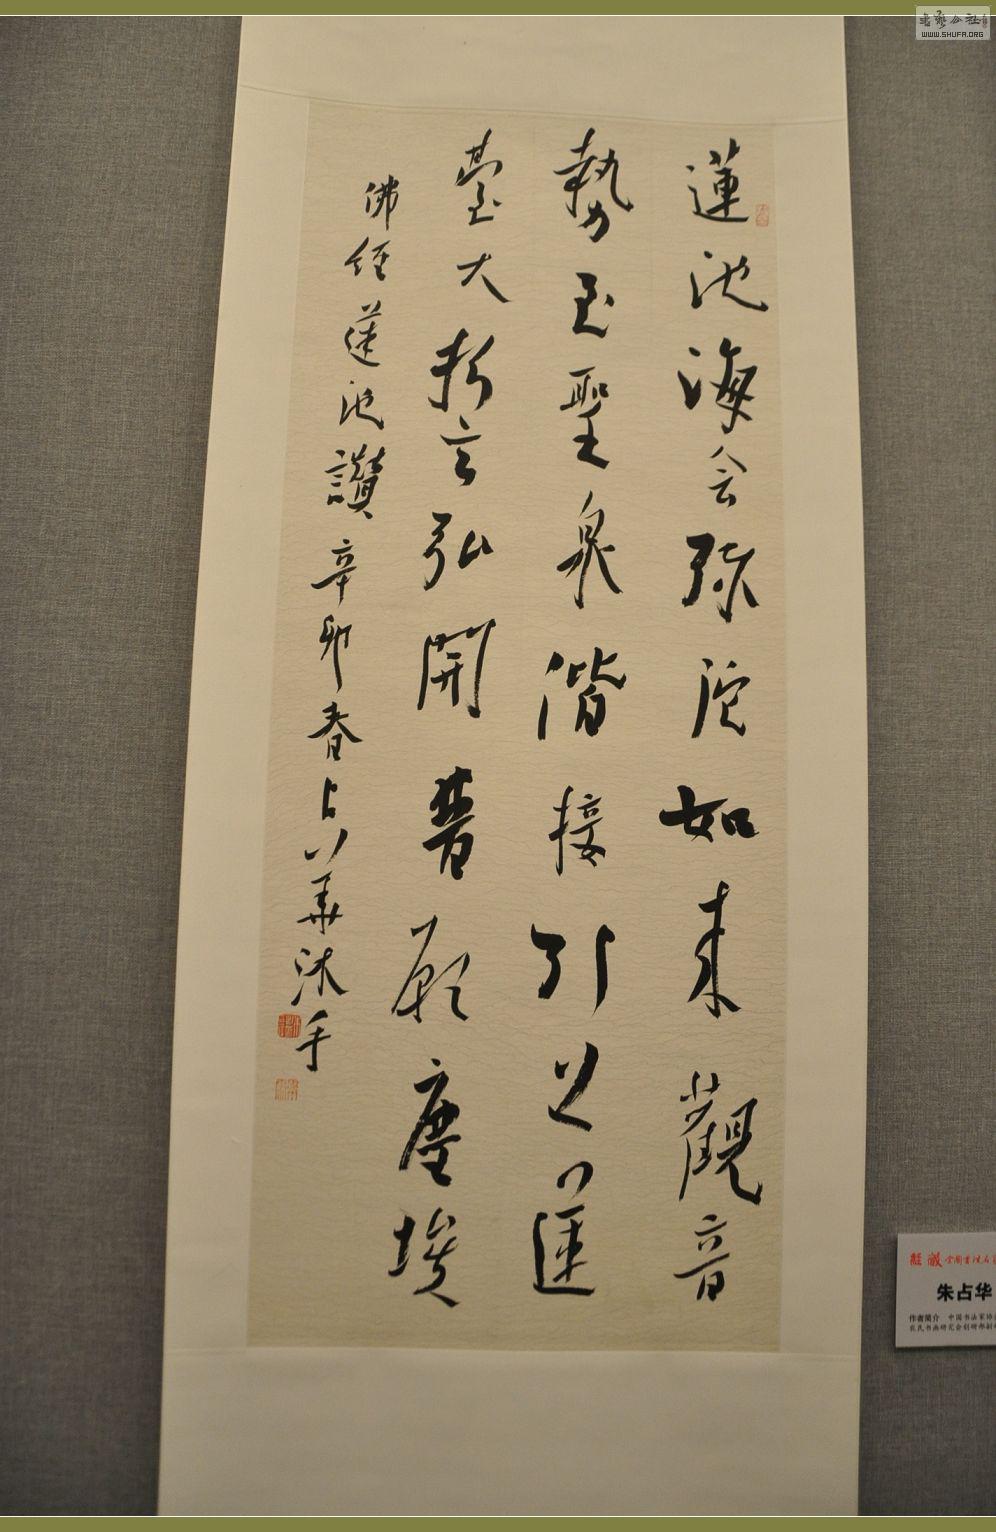 蓮池海会弥陀如来觀音
勢至聖衆階接引上蓮
臺大誓弘開普願塵埃
佛經蓮池讚辛卯春占華沐手
書藝公社
WWW.SHUFA.ORG
朱占华
作者简介 中国书法家协
农民书画研究会创研部副